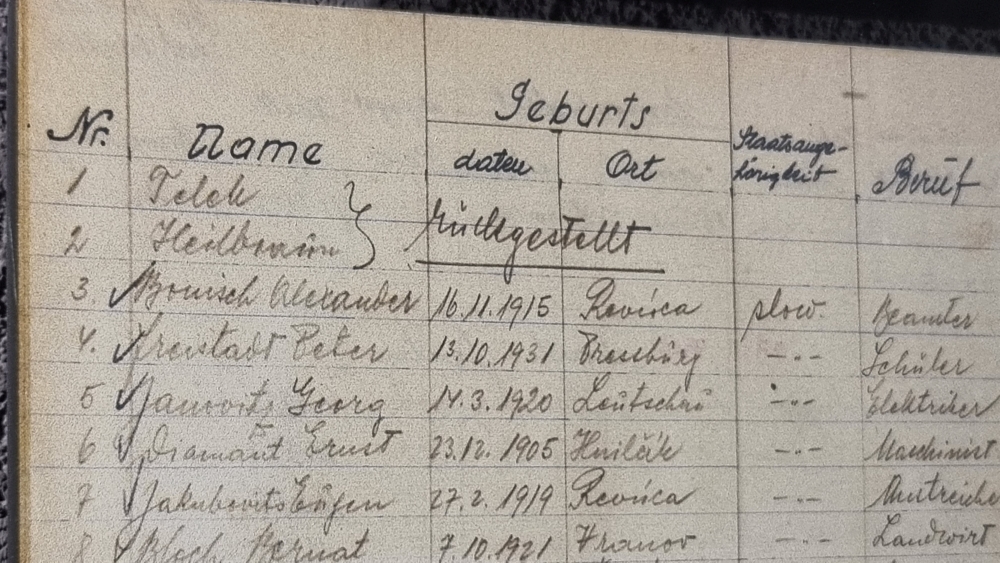 Geburts
Nr. Name daten Ort Staatsange- Beruf
hörigkeit
1 Felek
2 Heilbraun } rückgestellt
3. Bonisch Alexander 16.11.1915 Revúca slow. Beamter
4. Freistadt Peter 13.10.1931 Pressburg -"- Schüler
5 Janovits Georg 14.3.1920 Leutschau -"- Elektriker
6 Diamant Ernst 23.12.1905 Hnilčík -"- Maschinist
7 Jakubovits Eugen 27.2.1919 Revúca -"- Anstreicher
8 Bloch Bernat 7.10.1921 Vranov -"- Landwirt